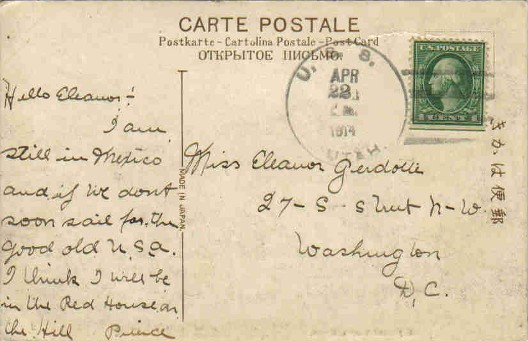 CARTE POSTALE
Postkarte - Cartolina Postale - Post Card
ОТКРЫТОЕ ПИСЬМО.
U. S. S.
APR
22
1914
UTAH.
U.S. POSTAGE
1 CENT 1
きかは便郵
MADE IN JAPAN
Hello Eleanor!
I am
still in Mexico
and if we dont
soon sail for the
good old U.S.A.
I think I will be
in the Red House on
the Hill Prince
Miss Eleanor Gerdotte
27 - S - Street N-W.
Washington
D.C.